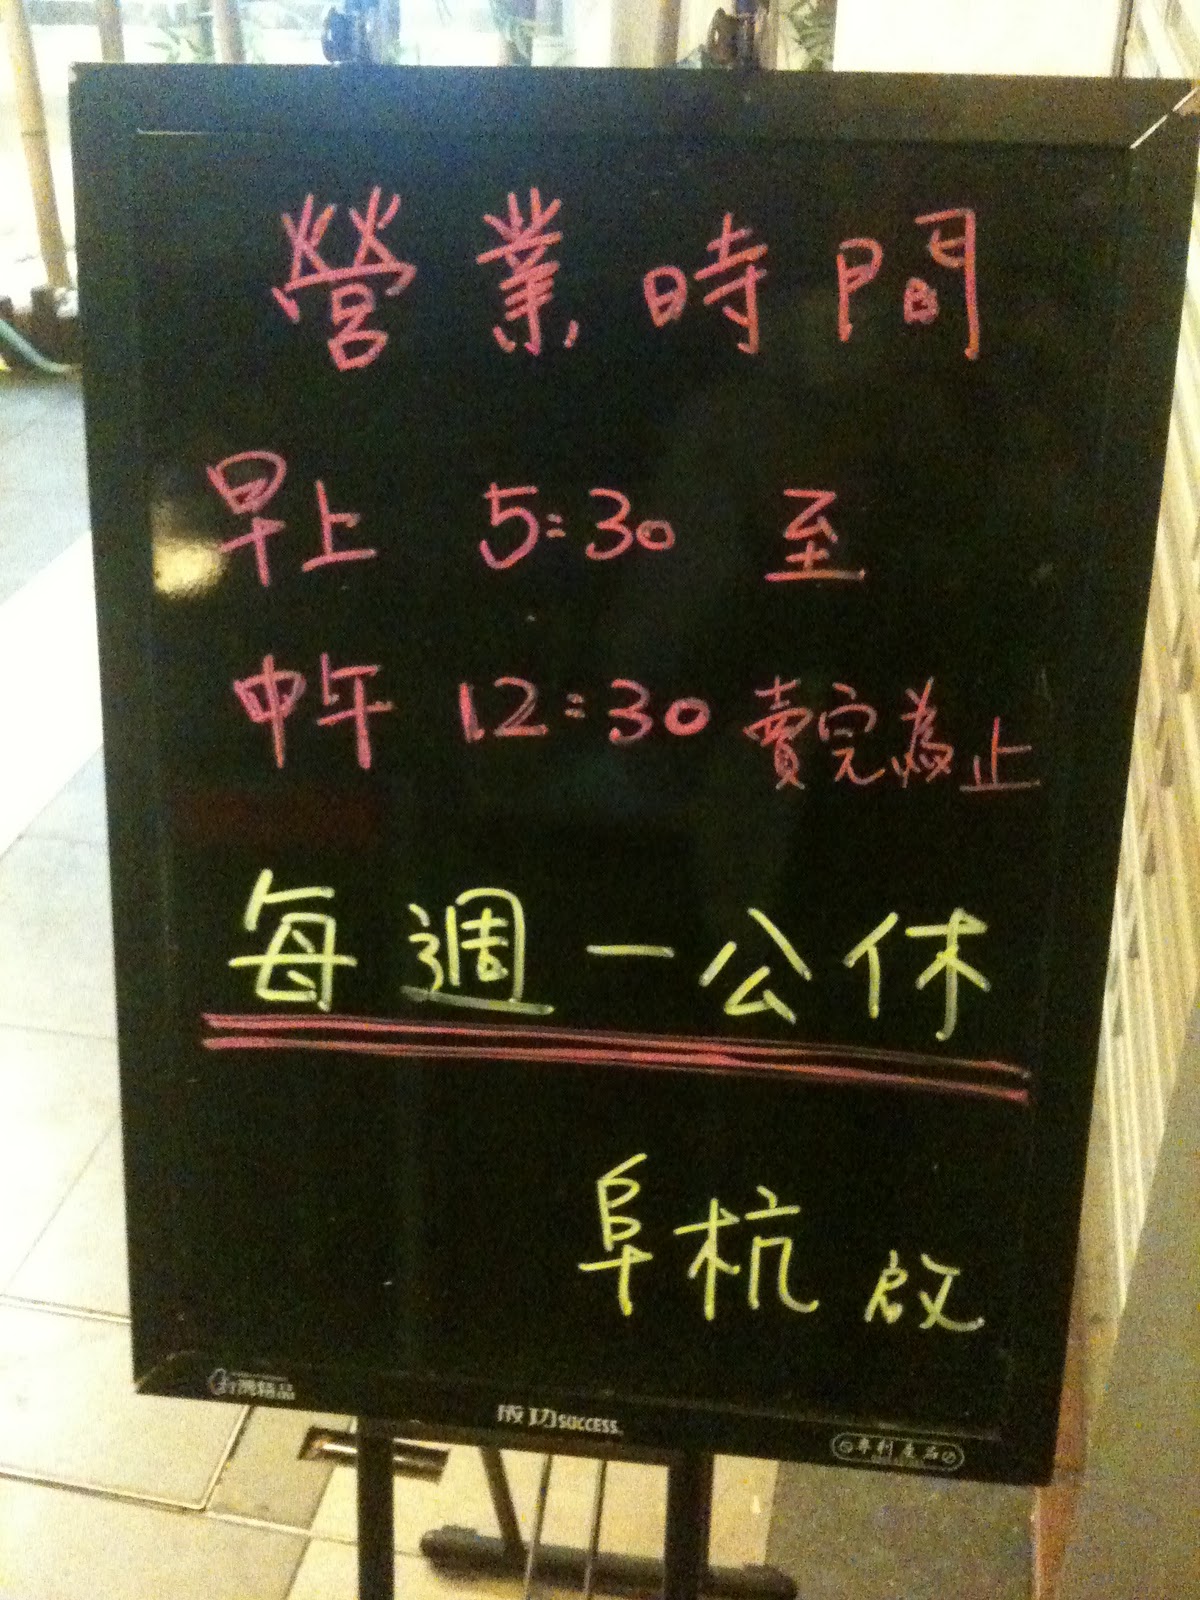 營業時間
早上 5:30 至
中午 12:30 賣完為止
每週一公休
阜杭 啟
台灣精品
成功 SUCCESS
專利產品